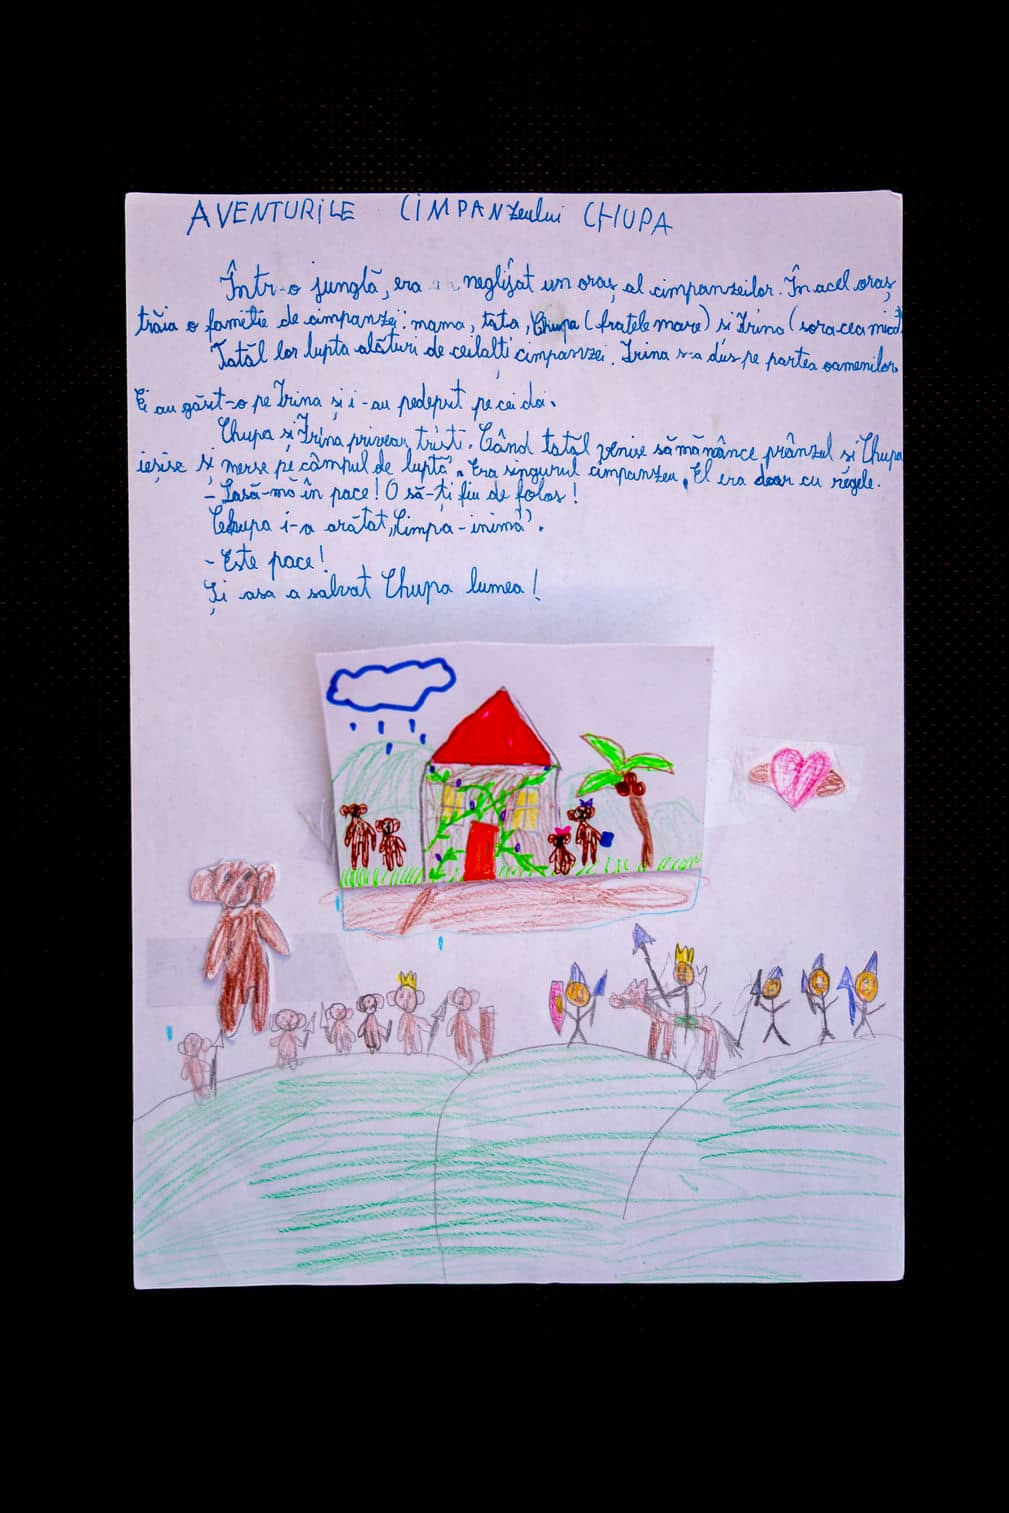 AVENTURILE CIMPANzeului CHUPA
Într-o junglă, era neglijat un oraș al cimpanzeilor. În acel oraș
trăia o familie de cimpanzei: mama, tata, Chupa (fratele mare) și Irina (sora cea mică)
Tatăl lor lupta alături de ceilalți cimpanzei. Irina s-a dus pe partea oamenilor.
Ei au găsit-o pe Irina și i-au pedepsit pe cei doi.
Chupa și Irina priveau triști. Când tatăl venise să mănânce prânzul și Chupa
ieșise și merse pe câmpul de luptă. Era singurul cimpanzeu. El era doar cu regele.
- Lasă-mă în pace! O să-ți fiu de folos!
Chupa i-a arătat „Cimpa-inimă”.
- Este pace!
Și așa a salvat Chupa lumea!